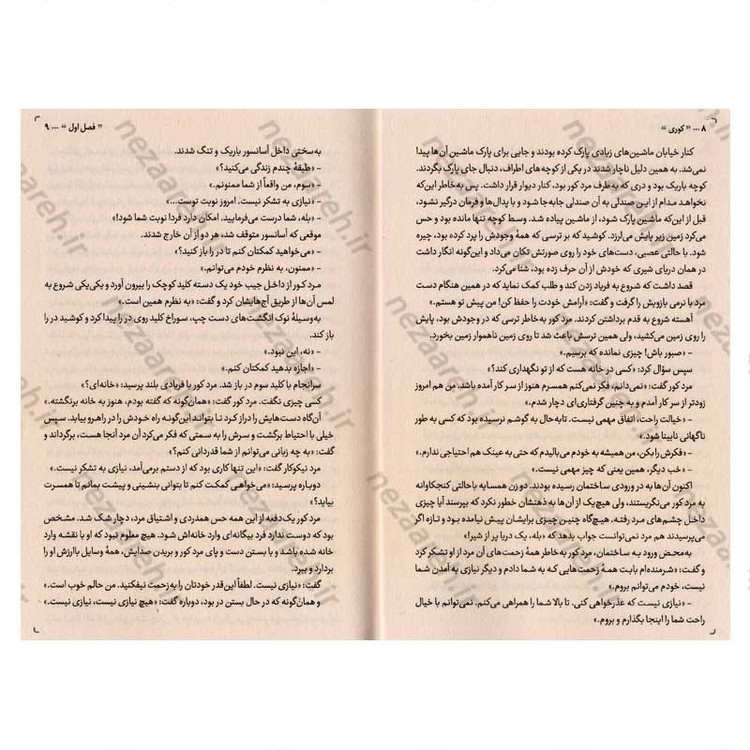 ۸ ... " کوری "
کنار خیابان ماشین‌های زیادی پارک کرده بودند و جایی برای پارک ماشین آن‌ها پیدا
نمی‌شد. به همین دلیل ناچار شدند در یکی از کوچه‌های اطراف، دنبال جای پارک بگردند.
کوچه باریک بود و دری که به‌طرف مرد کور بود، کنار دیوار قرار داشت. پس به‌خاطر این‌که
نخواهد مدام از این صندلی به آن صندلی جابه‌جا شود و با پدال‌ها و فرمان درگیر نشود،
قبل از این‌که ماشین پارک شود، از ماشین پیاده شد. وسط کوچه تنها مانده بود و حس
می‌کرد زمین زیر پایش می‌لرزد. کوشید که بر ترسی که همهٔ وجودش را پرد کرده بود، چیره
شود. با حالتی عصبی، دست‌های خود را روی صورتش تکان می‌داد و این‌گونه انگار داشت
در همان دریای شیری که خودش از آن حرف زده بود، شنا می‌کرد.
قصد داشت که شروع به فریاد زدن کند و طلب کمک نماید که در همین هنگام دست
مرد با نرمی بازویش را گرفت و گفت: «آرامش خودت را حفظ کن! من پیش تو هستم.»
آهسته شروع به قدم برداشتن کردند. مرد کور به‌خاطر ترسی که در وجودش بود، پایش
را روی زمین می‌کشید، ولی همین ترسش باعث شد تا روی زمین ناهموار زمین بخورد.
– «صبور باش! چیزی نمانده که برسیم.»
سپس سؤال کرد: «کسی در خانه هست که از تو نگهداری کند؟»
مرد کور گفت: «نمی‌دانم، فکر نمی‌کنم همسرم هنوز از سر کار آمده باشد. من هم امروز
زودتر از سر کار آمدم و به چنین گرفتاری‌ای دچار شدم.»
– «خیالت راحت، اتفاق مهمی نیست. تابه‌حال به گوشم نرسیده بود که کسی به طور
ناگهانی نابینا شود.»
– «فکرش را بکن، من همیشه به خودم می‌بالیدم که حتی به عینک هم احتیاجی ندارم.»
– «خب دیگر، همین یعنی که چیز مهمی نیست.»
اکنون آن‌ها به در ورودی ساختمان رسیده بودند. دو زن همسایه با حالتی کنجکاوانه
به مرد کور می‌نگریستند، ولی هیچ‌یک از آن‌ها به ذهنشان خطور نکرد که بپرسند آیا چیزی
داخل چشم‌های مرد رفته. هیچ‌گاه چنین چیزی برایشان پیش نیامده بود و تازه اگر
می‌پرسیدند هم مرد نمی‌توانست جواب بدهد که «بله، یک دریا پر از شیر!»
به‌محض ورود به ساختمان، مرد کور به خاطر همهٔ زحمت‌های آن مرد از او تشکر کرد
و گفت: «شرمنده‌ام بابت همهٔ زحمت‌هایی که به شما دادم و دیگر نیازی به آمدن شما
نیست، خودم می‌توانم بروم.»
– «نیازی نیست که عذرخواهی کنی. تا بالا شما را همراهی می‌کنم. نمی‌توانم با خیال
راحت شما را اینجا بگذارم و بروم.»
" فصل اول " ... ۹
به‌سختی داخل آسانسور باریک و تنگ شدند.
– «طبقهٔ چندم زندگی می‌کنید؟»
– «سوم، من واقعاً از شما ممنونم.»
– «نیازی به تشکر نیست. امروز نوبت توست...»
– «بله، شما درست می‌فرمایید. امکان دارد فردا نوبت شما شود!»
موقعی که آسانسور متوقف شد، هر دو از آن خارج شدند.
– «می‌خواهید کمکتان کنم تا در را باز کنید؟»
– «ممنون، به نظرم خودم می‌توانم.»
مرد کور از داخل جیب خود یک دسته کلید کوچک را بیرون آورد و یکی‌یکی شروع به
لمس آن‌ها از طریق آج‌هایشان کرد و گفت: «به نظرم همین است.»
به‌وسیلهٔ نوک انگشت‌های دست چپ، سوراخ کلید روی در را پیدا کرد و کوشید در را
باز کند.
– «نه، این نبود.»
– «اجازه بدهید کمکتان کنم.»
سرانجام با کلید سوم در باز شد. مرد کور با فریادی بلند پرسید: «خانه‌ای؟»
کسی چیزی نگفت. مرد کور گفت: «همان‌گونه که گفته بودم، هنوز به خانه برنگشته.»
آن‌گاه دست‌هایش را دراز کرد تا بتواند این‌گونه راه خودش را در راهرو بیابد. سپس
خیلی با احتیاط برگشت و سرش را به سمتی که فکر می‌کرد آن مرد آنجا هست، برگرداند و
گفت: «به چه زبانی می‌توانم از شما قدردانی کنم؟»
مرد نیکوکار گفت: «این تنها کاری بود که از دستم برمی‌آمد، نیازی به تشکر نیست.»
دوباره پرسید: «می‌خواهی کمکت کنم تا بتوانی بنشینی و پیشت بمانم تا همسرت
بیاید؟»
مرد کور یک‌دفعه از این همه حس همدردی و اشتیاق مرد، دچار شک شد. مشخص
بود که دوست ندارد فرد بیگانه‌ای وارد خانه‌اش شود. هیچ معلوم نبود که او با نقشه وارد
خانه شده باشد و با بستن دست و پای مرد کور و بریدن صدایش، همهٔ وسایل باارزش او را
بردارد و ببرد.
گفت: «نیازی نیست. لطفاً این‌قدر خودتان را به زحمت نیفکنید. من حالم خوب است.»
و همان‌گونه که در حال بستن در بود، دوباره گفت: «هیچ نیازی نیست، نیازی نیست.»
nezaareh.ir